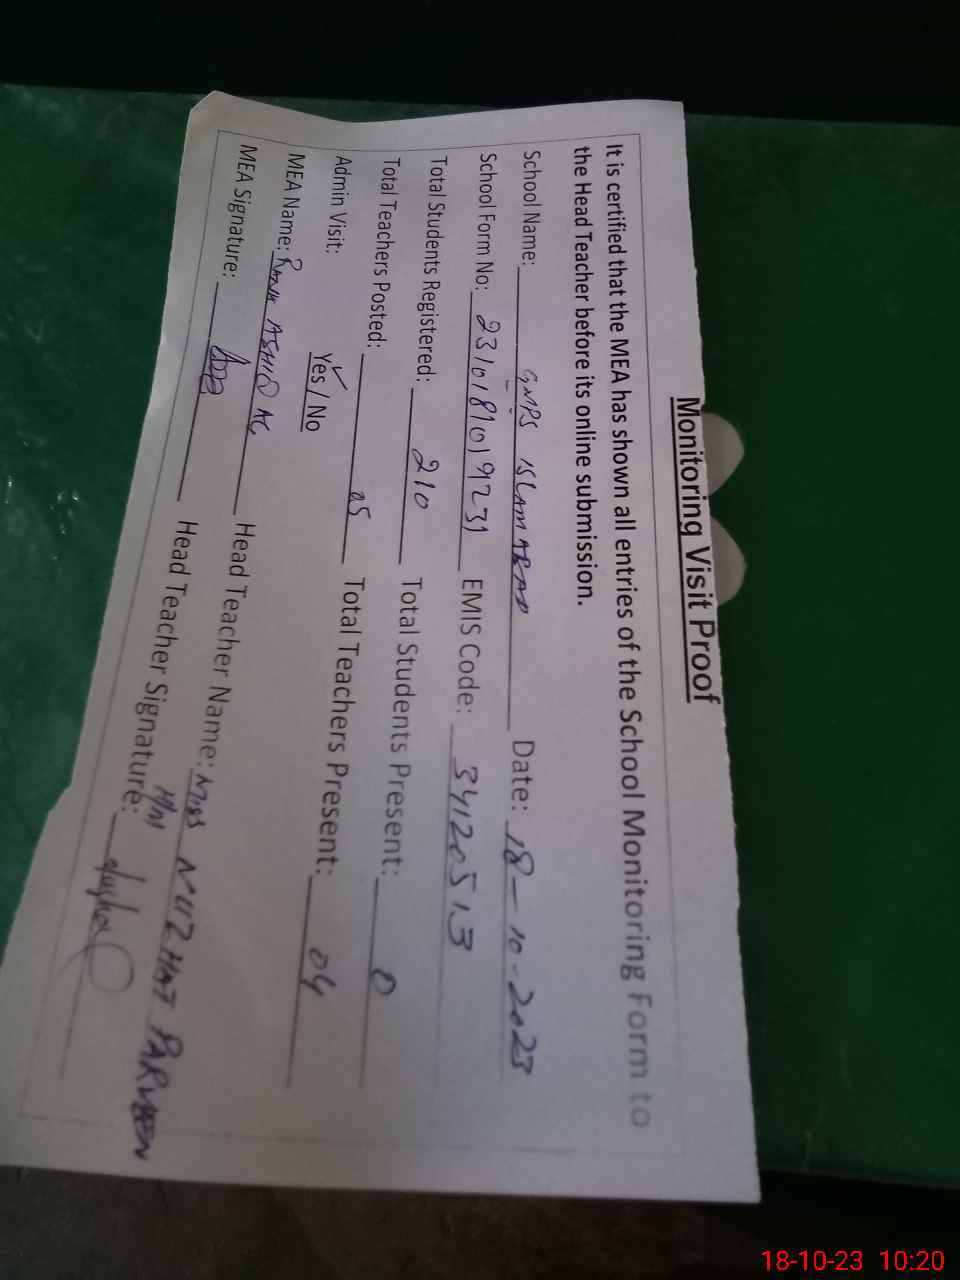 Monitoring Visit Proof
It is certified that the MEA has shown all entries of the School Monitoring Form to
the Head Teacher before its online submission.
School Name: GMPS ISLAMABAD Date: 18-10-2023
School Form No: 2310181019231 EMIS Code: 34120513
Total Students Registered: 210 Total Students Present: 0
Total Teachers Posted: 05 Total Teachers Present: 04
Admin Visit: Yes / No
MEA Name: ASHIQ Head Teacher Name: Miss NUZHAT PARVEEN
MEA Signature: Head Teacher Signature:
18-10-23 10:20